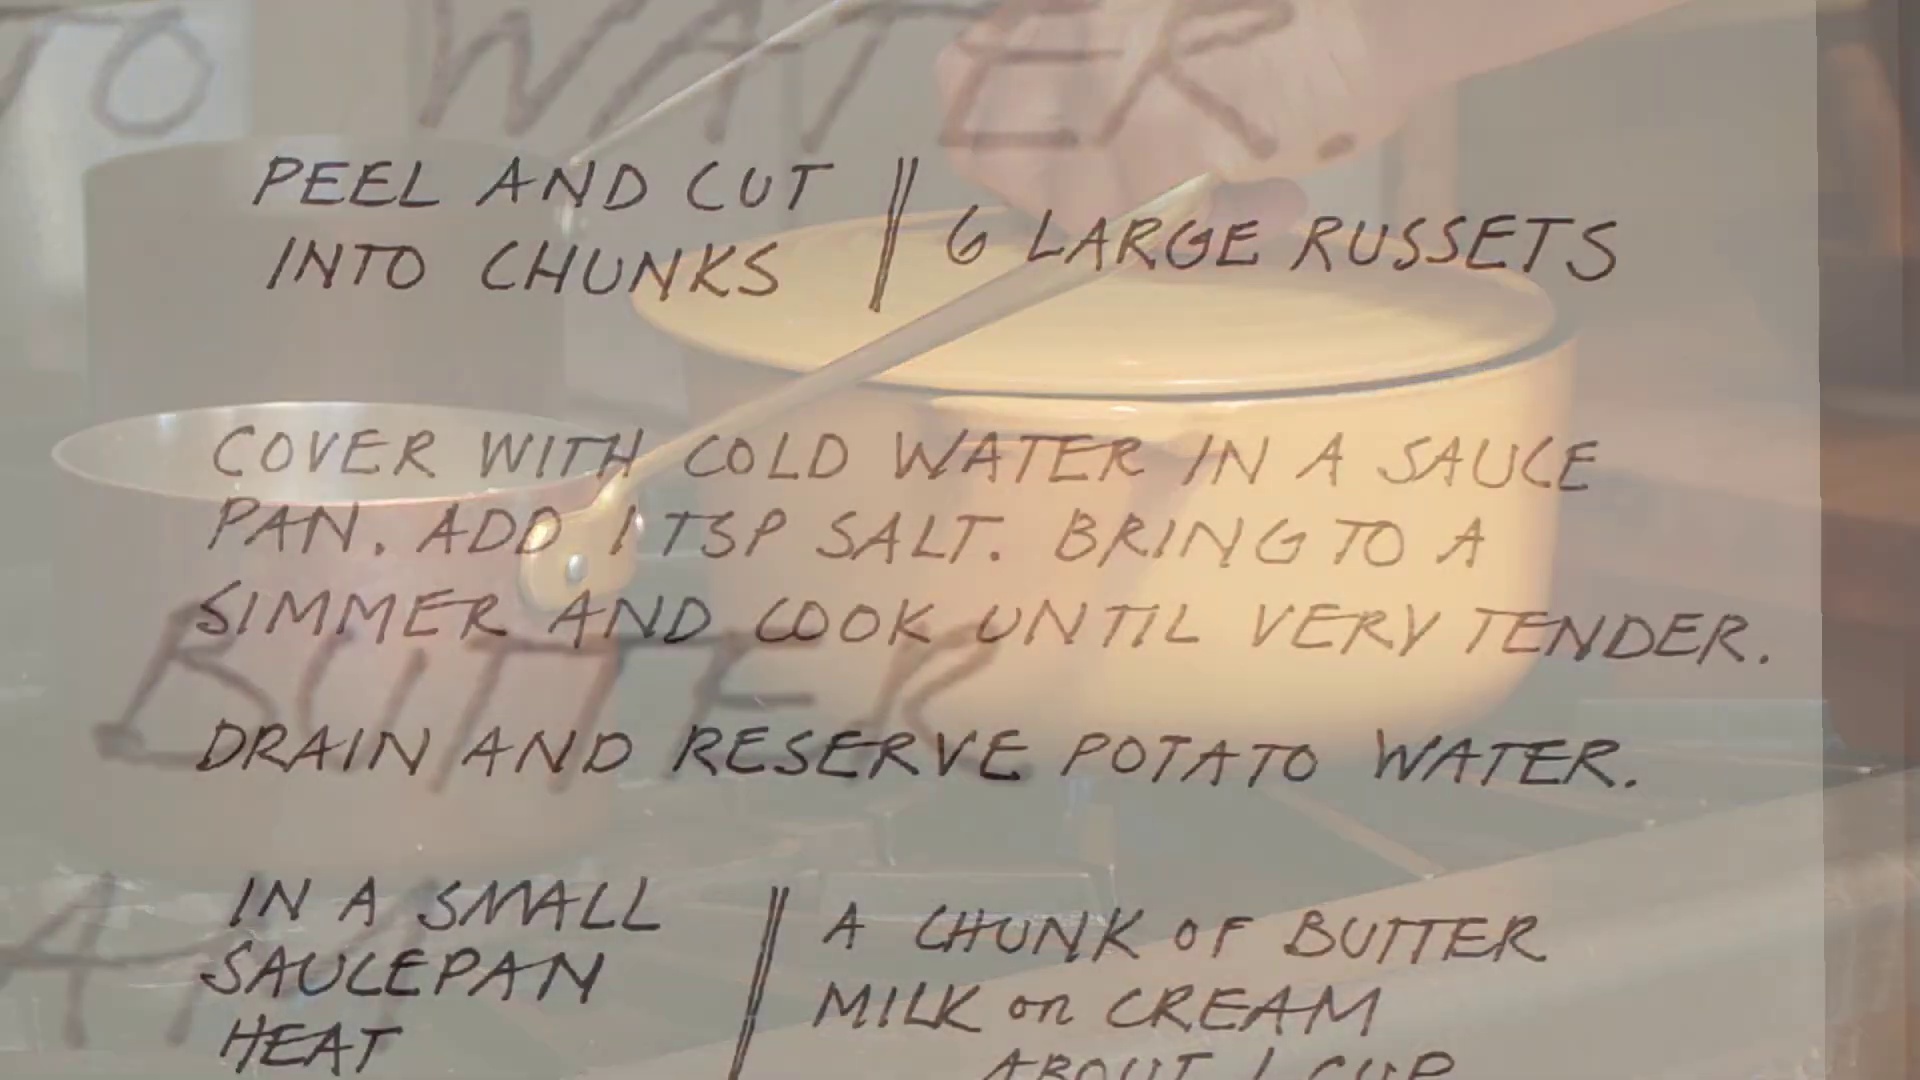 TO WATER.
PEEL AND CUT
INTO CHUNKS
6 LARGE RUSSETS
COVER WITH COLD WATER IN A SAUCE
PAN. ADD 1 TSP SALT. BRING TO A
SIMMER AND COOK UNTIL VERY TENDER.
BUTTER
DRAIN AND RESERVE POTATO WATER.
IN A SMALL
SAUCEPAN
HEAT
A CHUNK OF BUTTER
MILK or CREAM
ABOUT 1 CUP